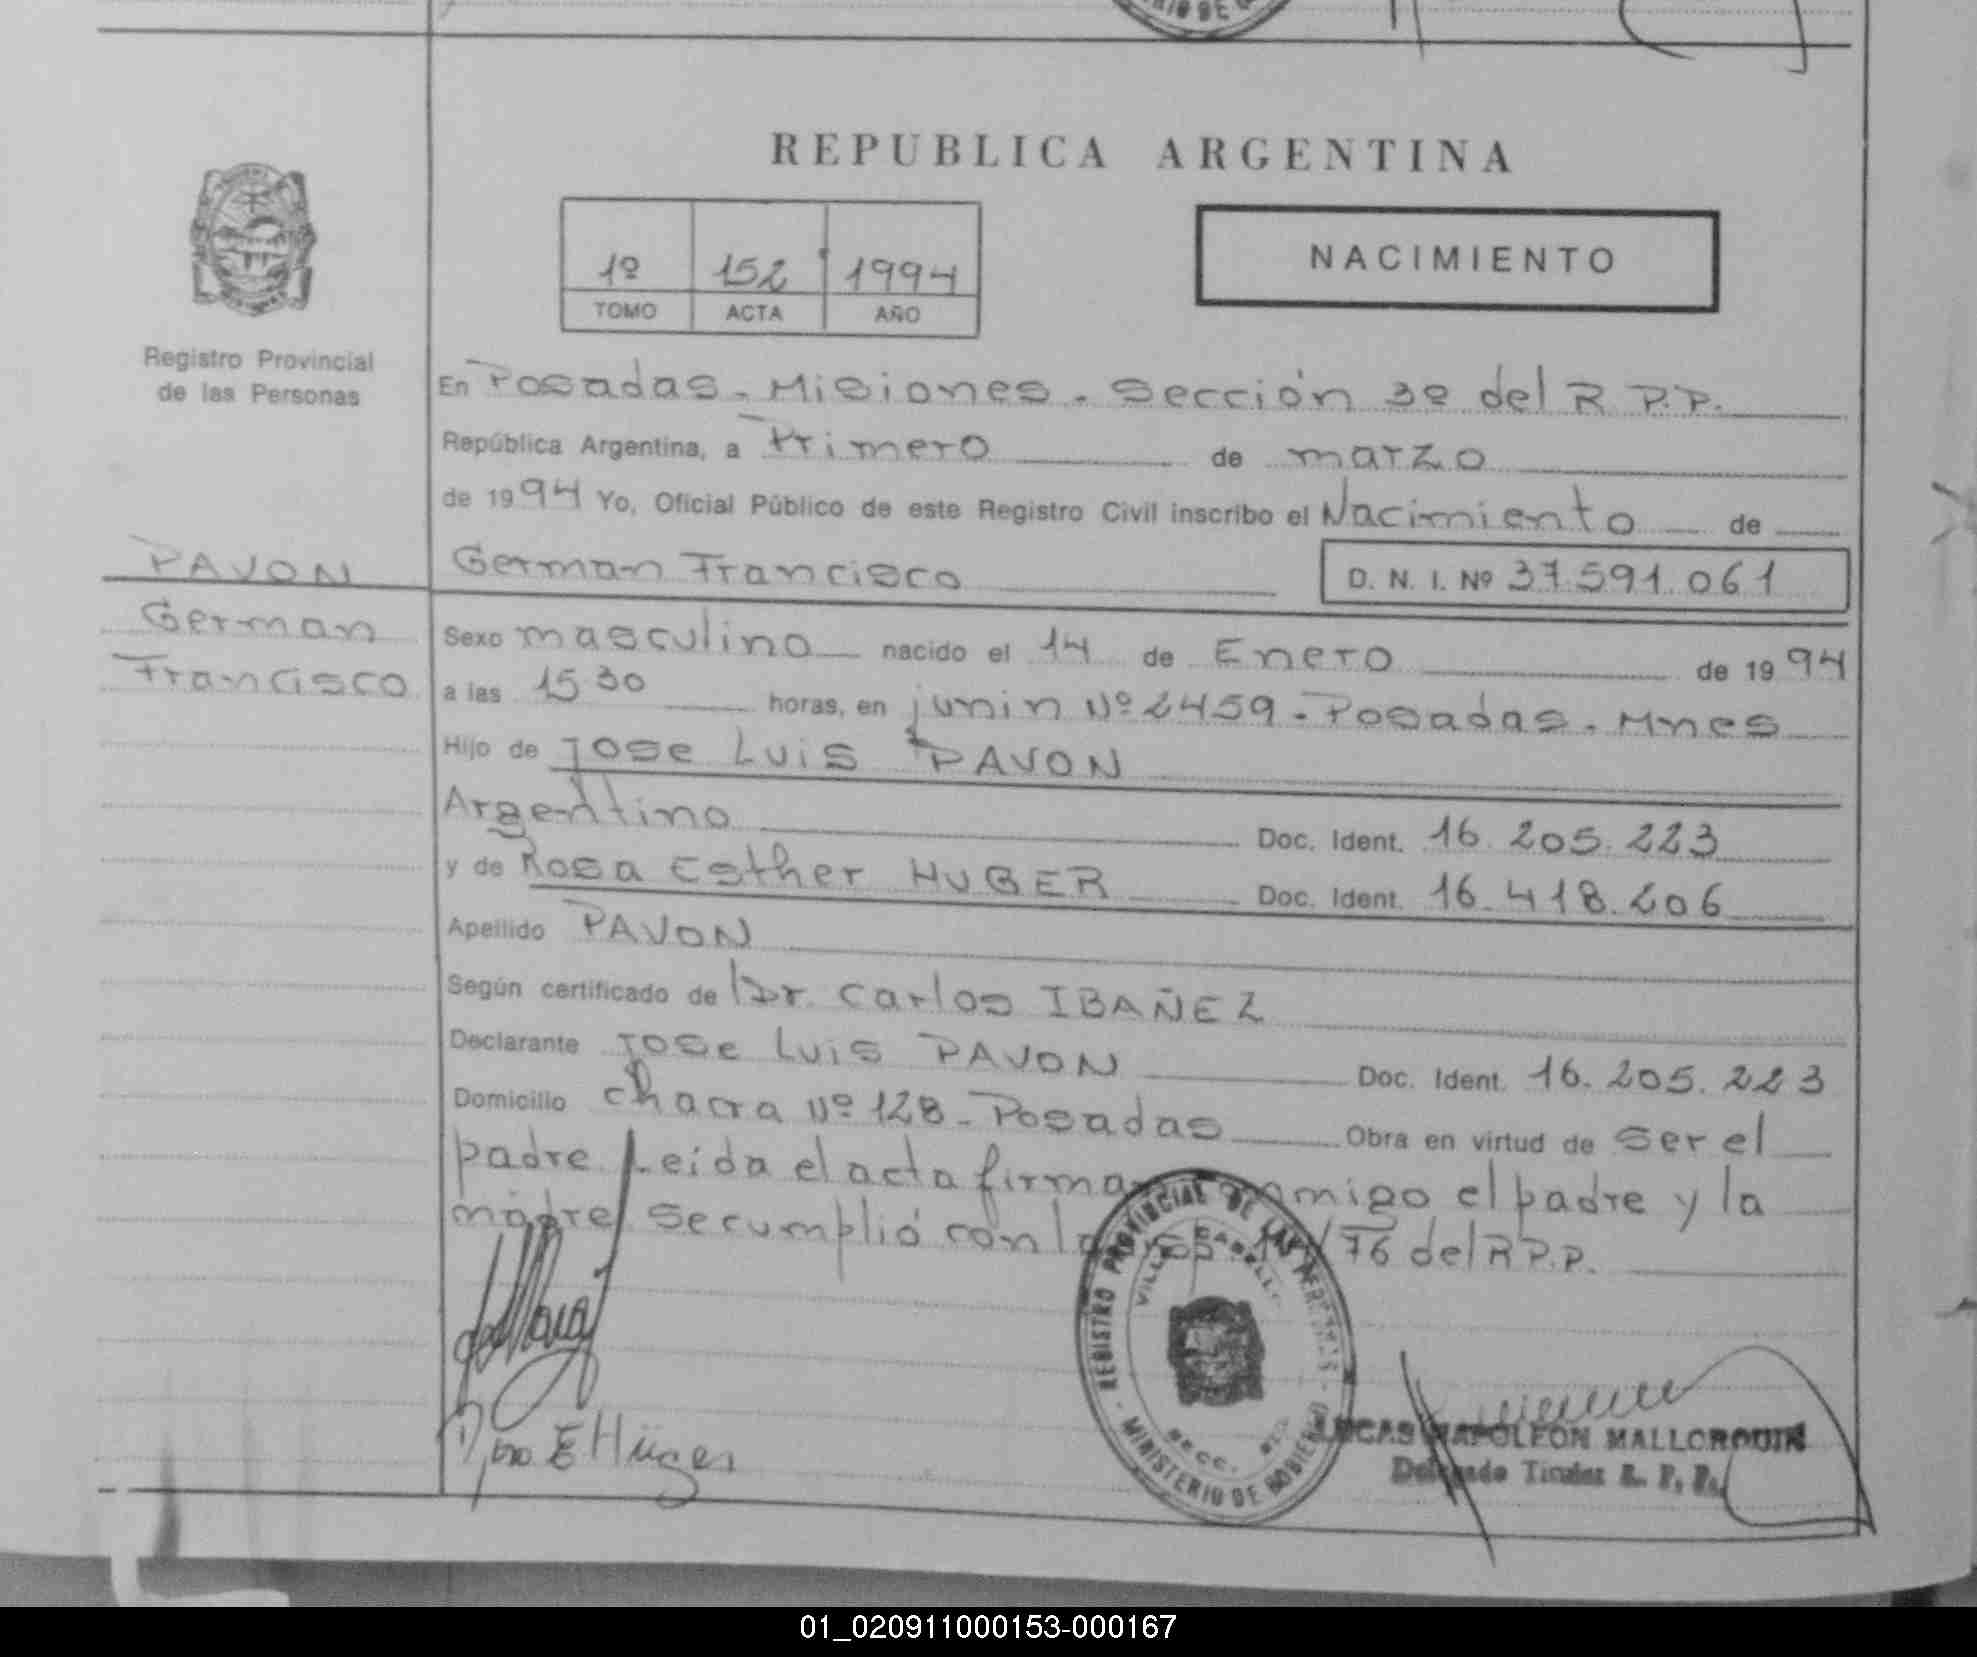 REPUBLICA ARGENTINA
NACIMIENTO
1º 152 1994
TOMO ACTA AÑO
Registro Provincial
de las Personas
En Posadas - Misiones - Sección 3º del R P.P.
República Argentina, a Primero de marzo
de 1994 Yo, Oficial Público de este Registro Civil inscribo el Nacimiento de
PAVON
German
Francisco
German Francisco D. N. I. Nº 37.591.061
Sexo masculino nacido el 14 de Enero de 1994
a las 15 30 horas, en junin Nº 2459 - Posadas - Mnes
Hijo de Jose Luis PAVON
Argentino Doc. Ident. 16.205.223
y de Rosa Esther HUBER Doc. Ident. 16.418.206
Apellido PAVON
Según certificado de Dr. Carlos IBAÑEZ
Declarante Jose Luis PAVON Doc. Ident. 16.205.223
Domicilio Chacra Nº 128 - Posadas Obra en virtud de ser el
padre Leida el acta firman conmigo el padre y la
madre se cumplió con la /76 del R P.P.
REGISTRO PROVINCIAL DE LAS PERSONAS
VILLA CABELLO
SECC.
- MINISTERIO DE GOBIERNO -
LUCAS NAPOLEON MALLORQUIN
Delegado Titular R. P. P.
01_020911000153-000167